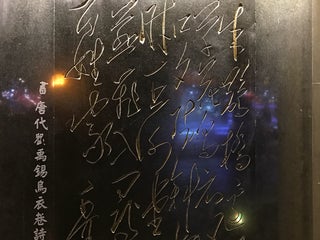 朱雀橋邊
野草花烏衣巷
口夕陽斜
時王謝堂
燕飛入尋
百姓家
書唐代劉禹錫烏衣巷詩